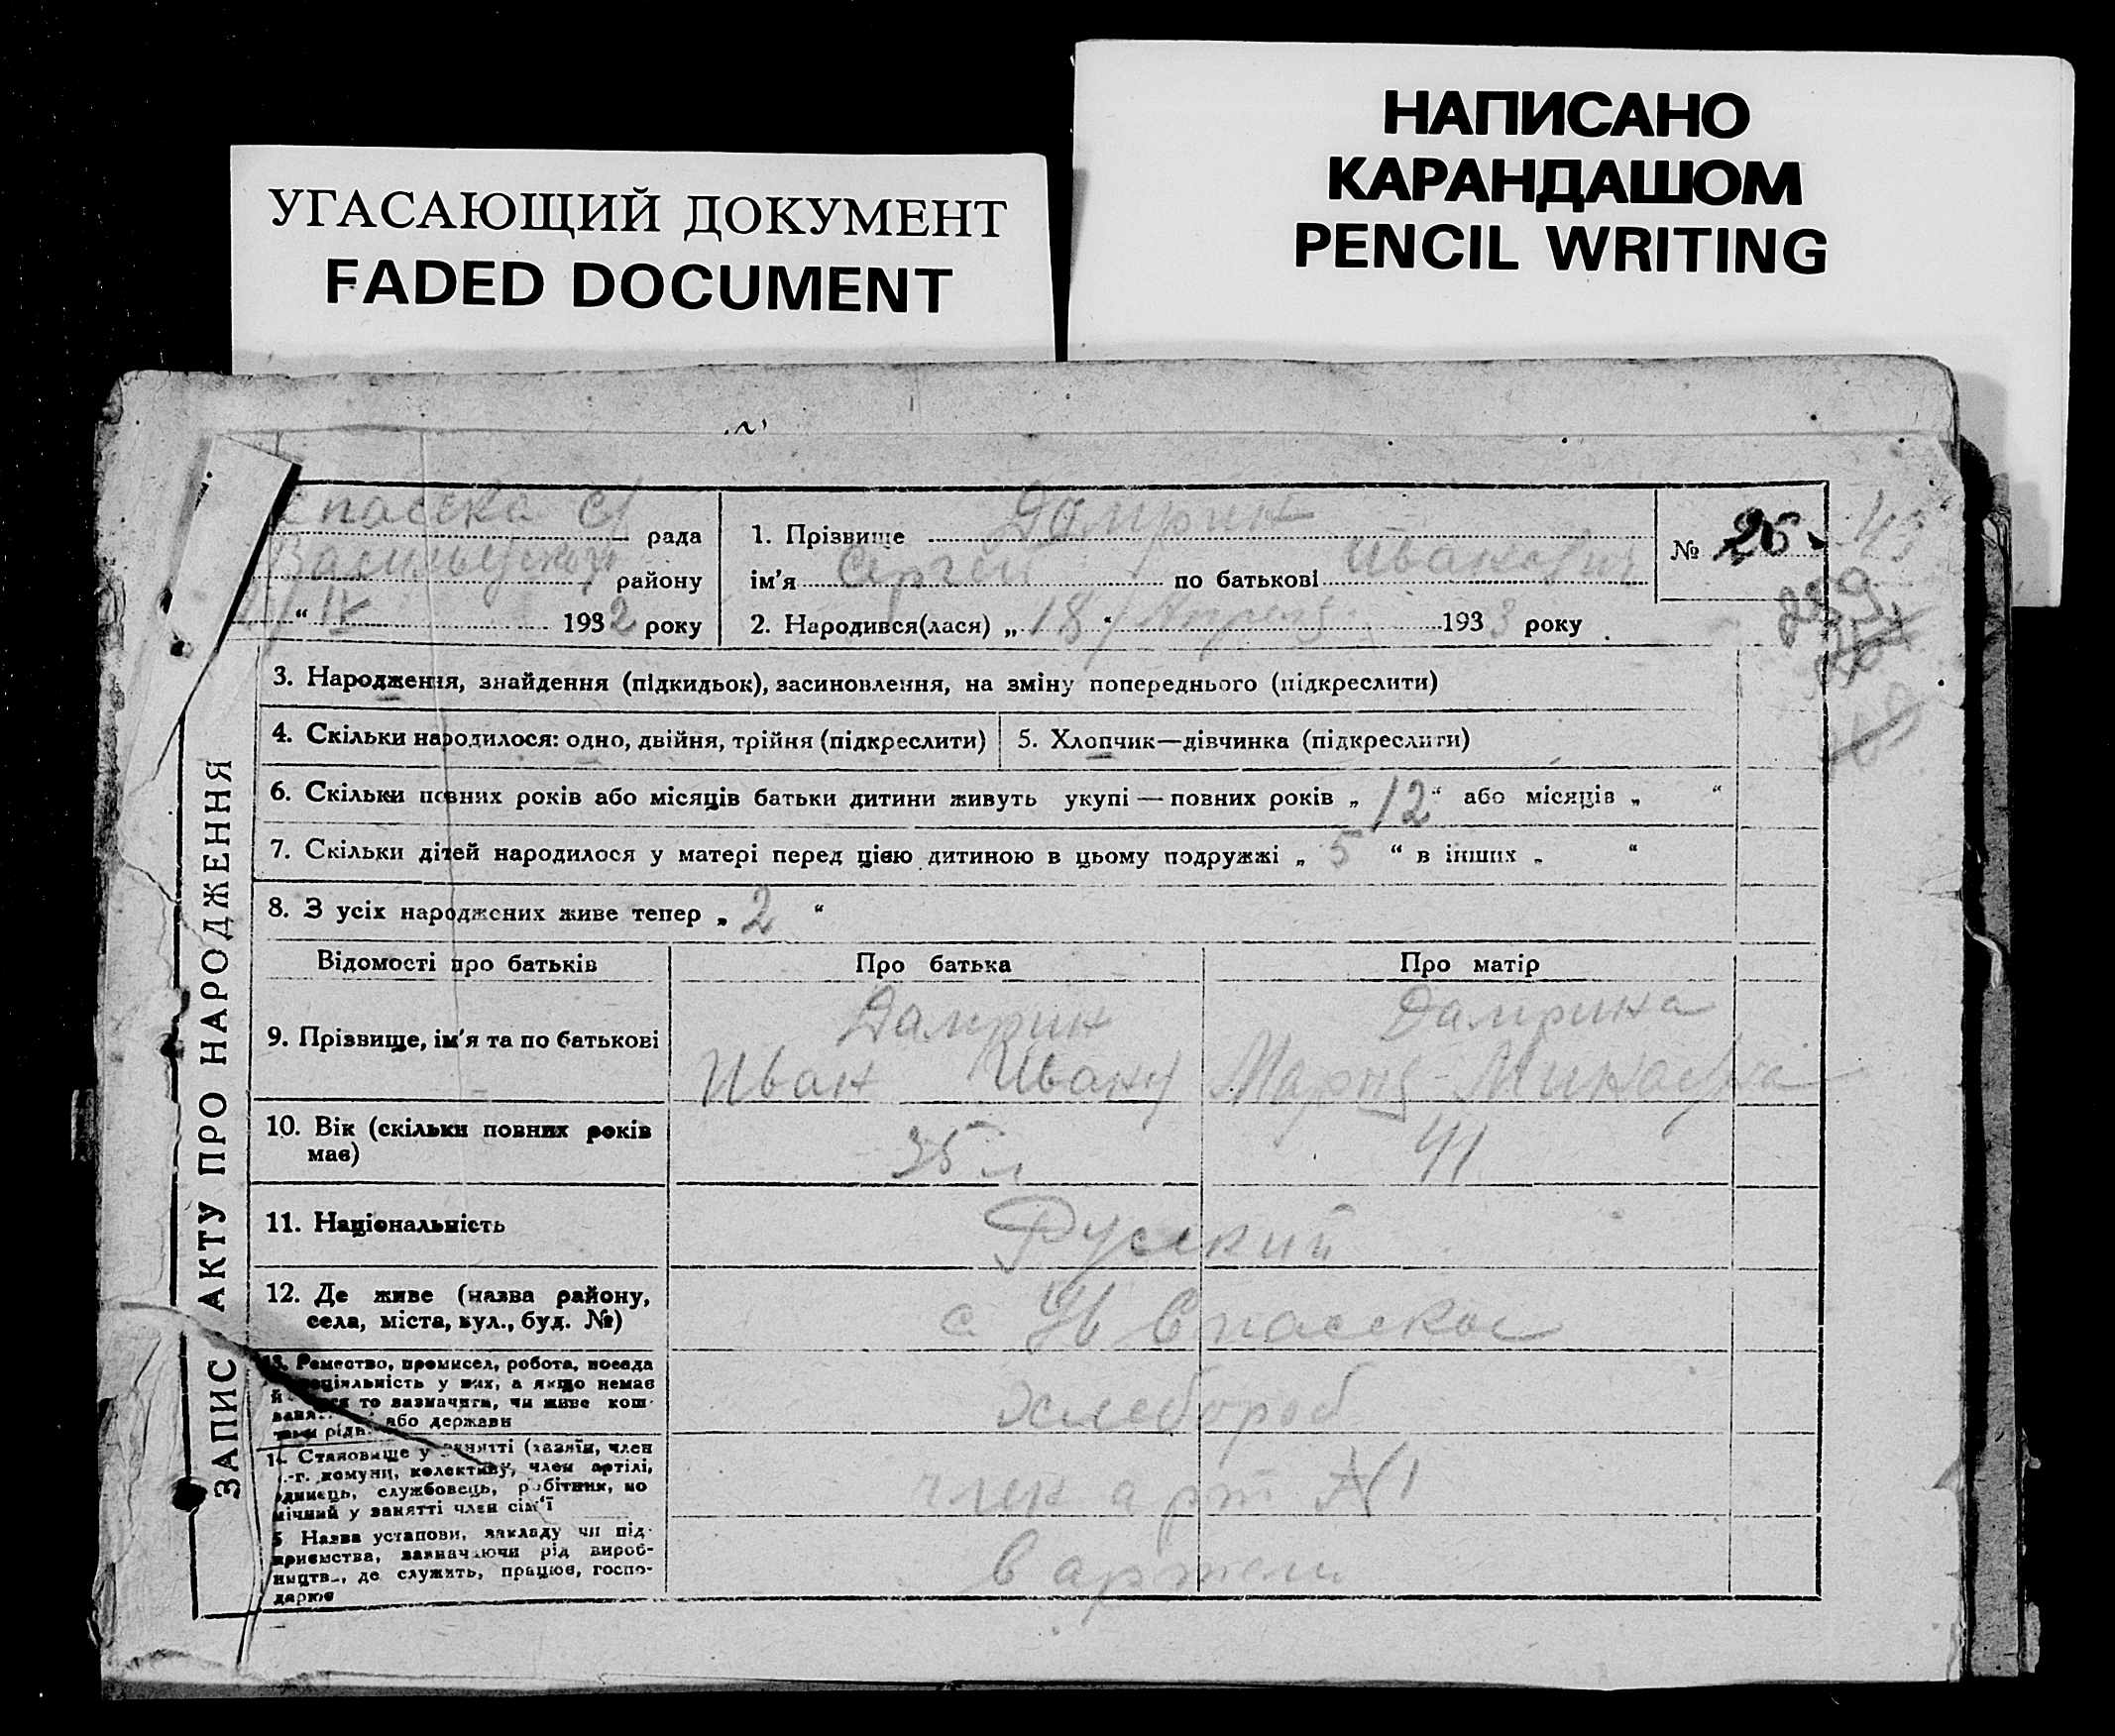 НАПИСАНО
КАРАНДАШОМ
PENCIL WRITING
УГАСАЮЩИЙ ДОКУМЕНТ
FADED DOCUMENT
рада
району
1932 року
1. Прізвище Дамрин
ім'я Сергей по батькові Иванович
2. Народився(лася) „ 18 " Апреля 1933 року
№ 26
3. Народження, знайдення (підкидьок), засиновлення, на зміну попереднього (підкреслити)
4. Скільки народилося: одно, двійня, трійня (підкреслити)
5. Хлопчик—дівчинка (підкреслити)
6. Скільки повних років або місяців батьки дитини живуть укупі — повних років „ 12 “ або місяців „ “
7. Скільки дітей народилося у матері перед цією дитиною в цьому подружжі „ 5 “ в інших „ “
8. З усіх народжених живе тепер „ 2 “
Відомості про батьків
Про батька
Про матір
9. Прізвище, ім'я та по батькові
Дамрин
Иван
Дамрина
Мария
10. Вік (скільки повних років
має)
35 л
41
11. Національність
Русский
12. Де живе (назва району,
села, міста, вул., буд. №)
с Спасское
Ремество, промисел, робота, посада
у них, а якщо немає
то зазначити, чи живе кош-
або держави
Становище у занятті (хазяїн, член
комуни, колективу, член артілі,
службовець, робітник, по
у занятті член сім'ї
Назва установи, закладу чи під-
приємства, зазначаючи рід вироб-
де служить, працює, госпо-
дарює
хлебороб
член арт №1
в артели
ЗАПИС АКТУ ПРО НАРОДЖЕННЯ